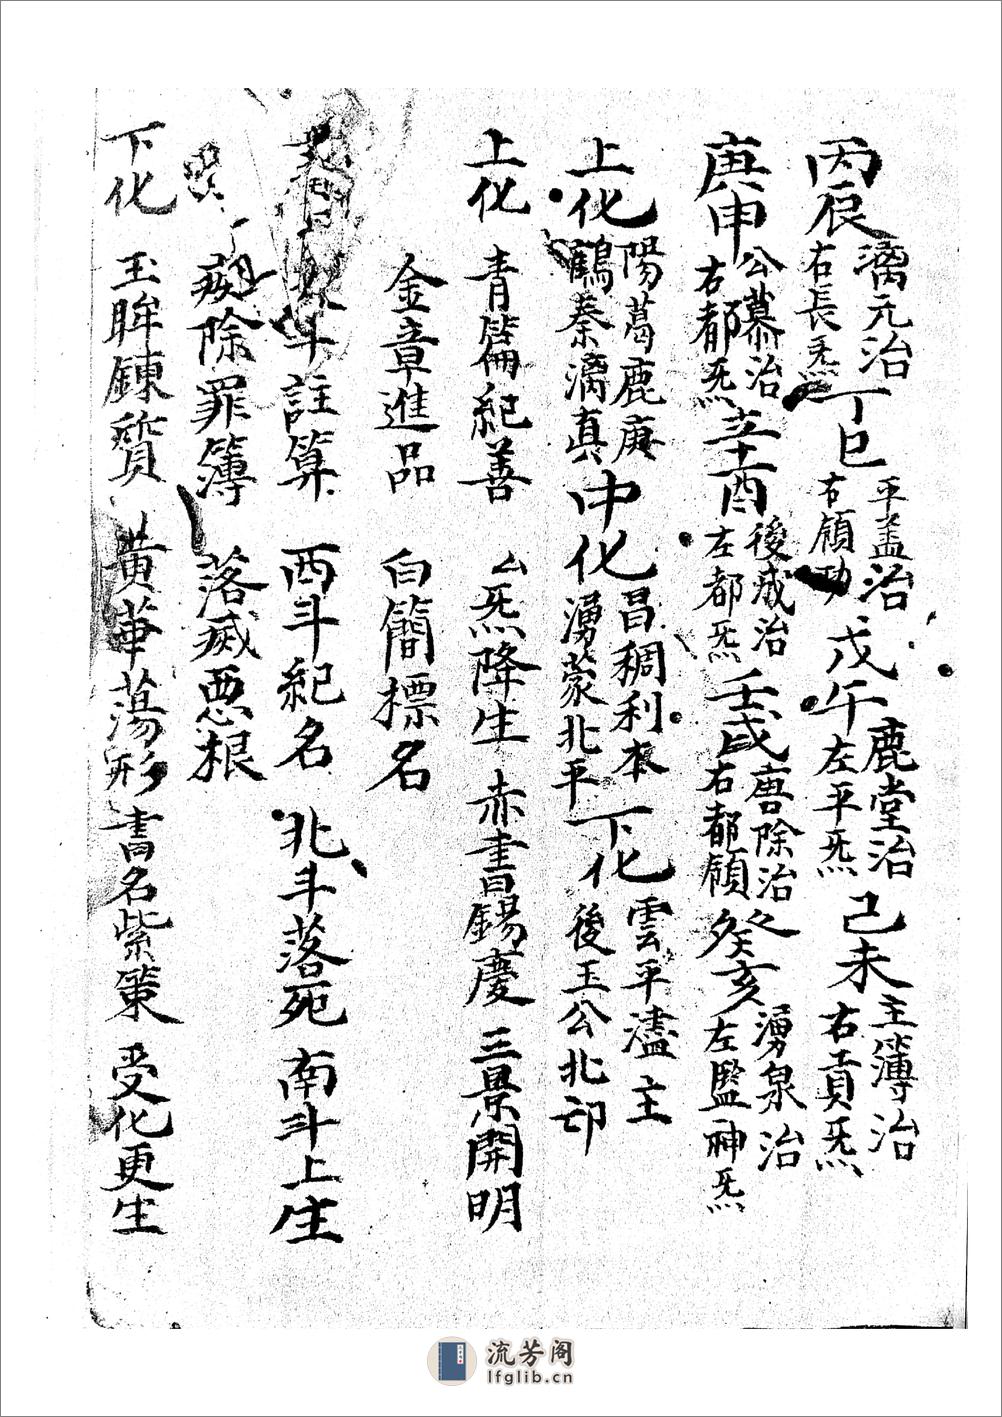 丙辰 漓元治 右長炁 丁巳 平盖治 右領功 戊午 鹿堂治 左平炁 己未 主簿治 右貢炁
庚申 公慕治 右都炁 辛酉 後成治 左都炁 壬戌 唐除治 右都領 癸亥 湧泉治 左監神炁
上化 陽葛鹿庚 鶴秦漓真 中化 昌稠利本 湧蒙北平 下化 雲平濜主 後玉公北邙
上化 青篇紀善 幺炁降生 赤書錫慶 三景開明
金章進品 白簡標名
斗註算 西斗紀名 北斗落死 南斗上生
除罪簿 落滅惡根
下化 玉眸鍊質 黃華蕩形 書名紫策 受化更生
流芳阁
lfglib.cn